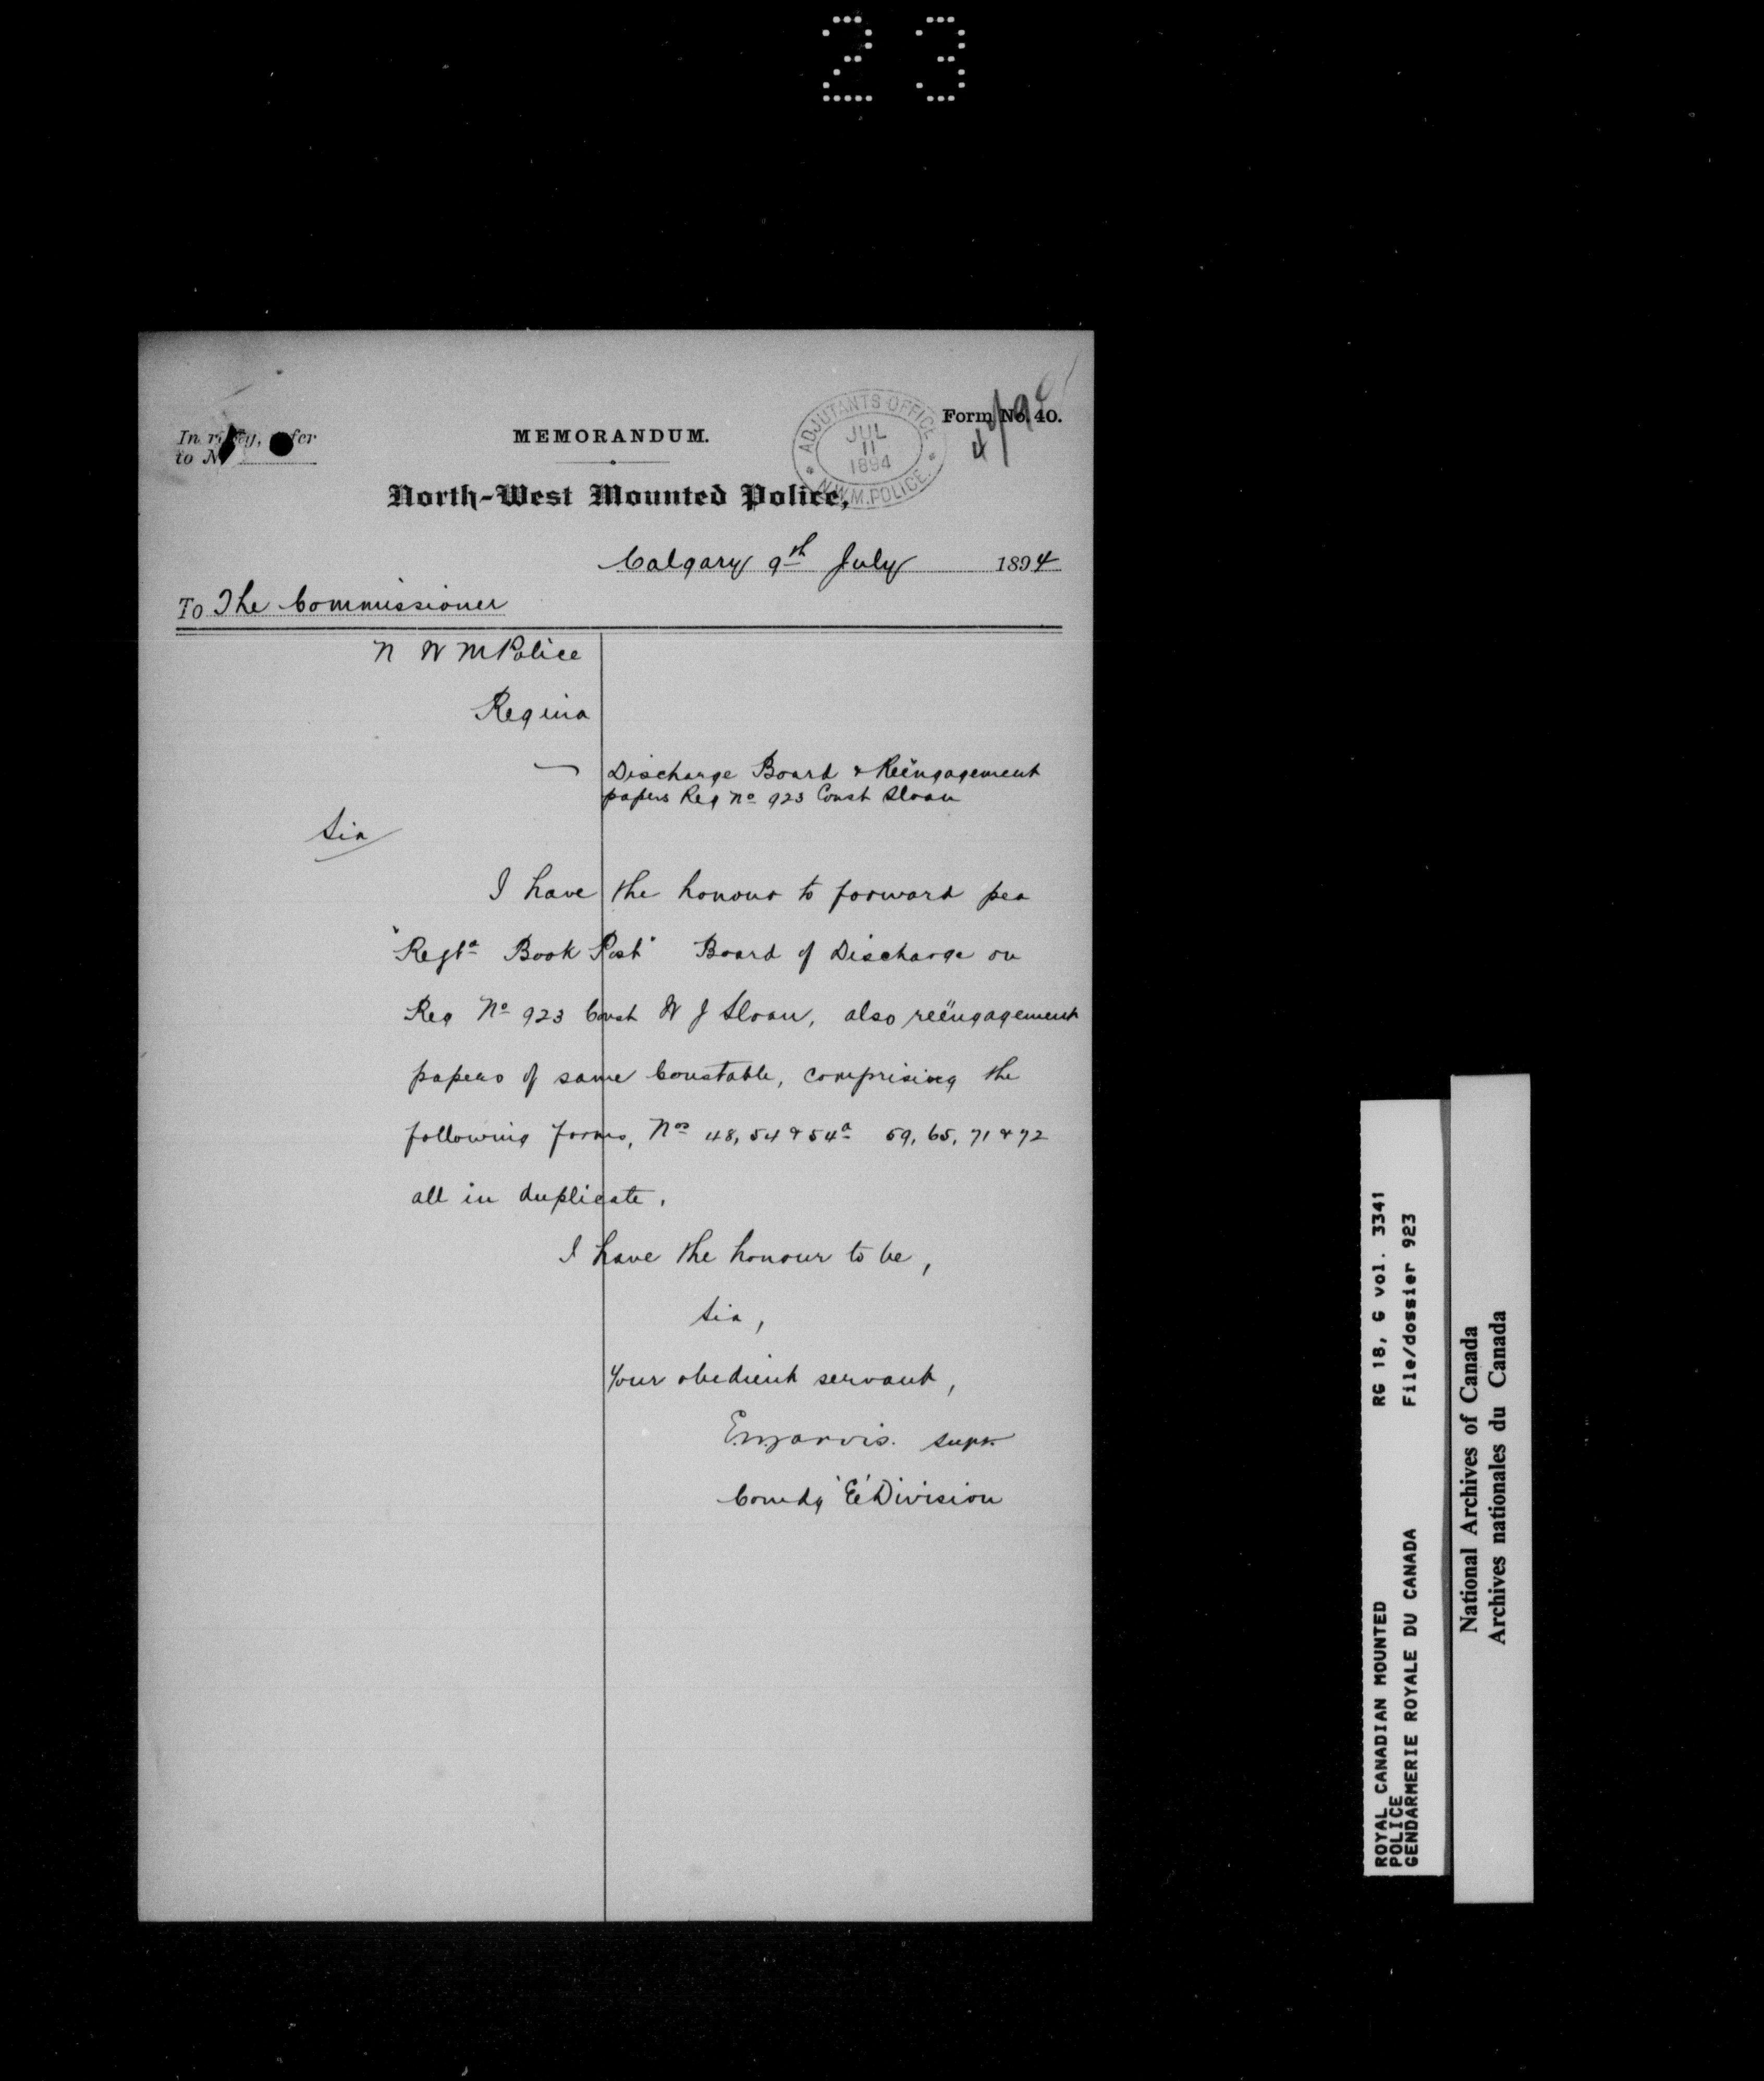 23
Form No. 40.
In reply, refer
to No
MEMORANDUM.
ADJUTANTS OFFICE
JUL
11
1894
N.W.M.POLICE.
North-West Mounted Police,
Calgary 9th July 1894
To The Commissioner
N W M Police
Regina
Discharge Board & Reëngagement
papers Reg No 923 Const Sloan
Sir
I have the honour to forward per
"Regta Book Post" Board of Discharge on
Reg No 923 Const W J Sloan, also reëngagement
papers of same Constable, comprising the
following forms, Nos 48, 54 & 54a 59, 65, 71 & 72
all in duplicate.
I have the honour to be,
Sir,
Your obedient servant,
E.W. Jarvis. Supt
Comdg 'E' Division
ROYAL CANADIAN MOUNTED RG 18, G vol. 3341
POLICE
GENDARMERIE ROYALE DU CANADA File/dossier 923
National Archives of Canada
Archives nationales du Canada